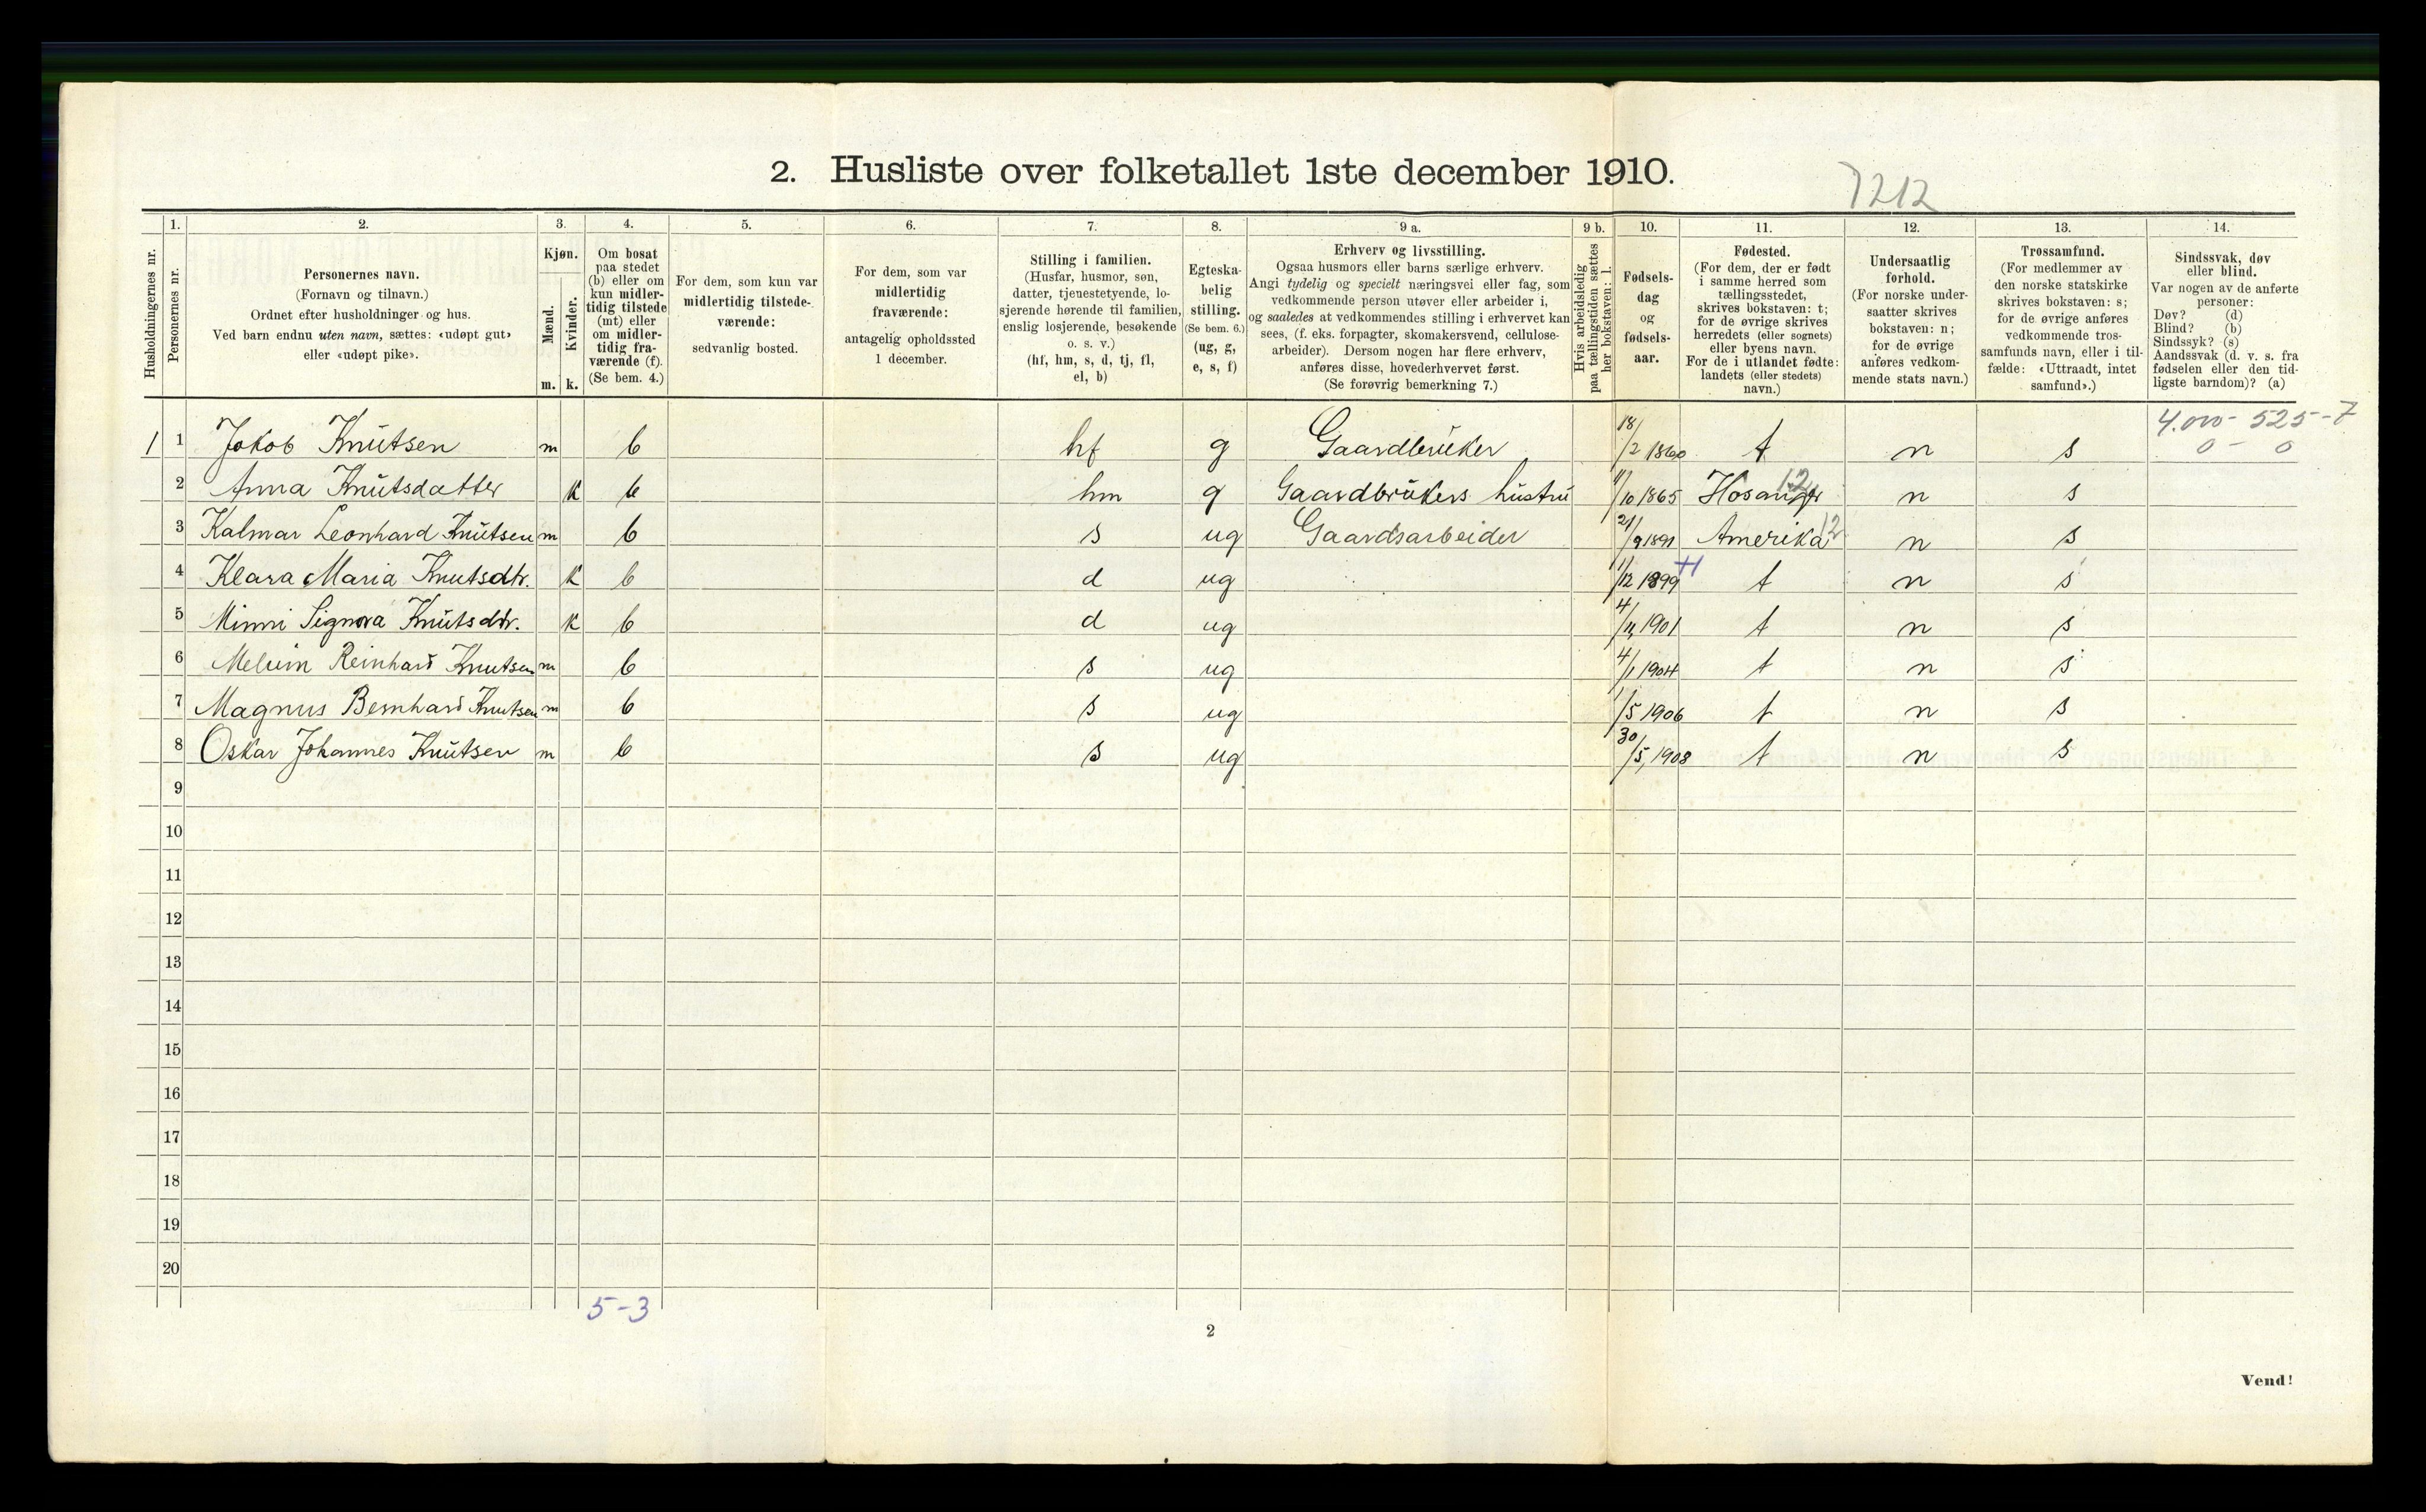 2. Husliste over folketallet 1ste december 1910.
7212
Husholdningernes nr.
1.
Personernes nr.
2.
Personernes navn.
(Fornavn og tilnavn.)
Ordnet efter husholdninger og hus.
Ved barn endnu uten navn, sættes: «udøpt gut»
eller «udøpt pike».
3.
Kjøn.
Mænd.
Kvinder.
m. k.
4.
Om bosat
paa stedet
(b) eller om
kun midler-
tidig tilstede
(mt) eller
om midler-
tidig fra-
værende (f).
(Se bem. 4.)
5.
For dem, som kun var
midlertidig tilstede-
værende:
sedvanlig bosted.
6.
For dem, som var
midlertidig
fraværende:
antagelig opholdssted
1 december.
7.
Stilling i familien.
(Husfar, husmor, søn,
datter, tjenestetyende, lo-
sjerende hørende til familien,
enslig losjerende, besøkende
o. s. v.)
(hf, hm, s, d, tj, fl,
el, b)
8.
Egteska-
belig
stilling.
(Se bem. 6.)
(ug, g,
e, s, f)
9 a.
Erhverv og livsstilling.
Ogsaa husmors eller barns særlige erhverv.
Angi tydelig og specielt næringsvei eller fag, som
vedkommende person utøver eller arbeider i,
og saaledes at vedkommendes stilling i erhvervet kan
sees, (f. eks. forpagter, skomakersvend, cellulose-
arbeider). Dersom nogen har flere erhverv,
anføres disse, hovederhvervet først.
(Se forøvrig bemerkning 7.)
9 b.
Hvis arbeidsledig
paa tællingstiden sættes
her bokstaven: l.
10.
Fødsels-
dag
og
fødsels-
aar.
11.
Fødested.
(For dem, der er født
i samme herred som
tællingsstedet,
skrives bokstaven: t;
for de øvrige skrives
herredets (eller sognets)
eller byens navn.
For de i utlandet fødte:
landets (eller stedets)
navn.)
12.
Undersaatlig
forhold.
(For norske under-
saatter skrives
bokstaven: n;
for de øvrige
anføres vedkom-
mende stats navn.)
13.
Trossamfund.
(For medlemmer av
den norske statskirke
skrives bokstaven: s;
for de øvrige anføres
vedkommende tros-
samfunds navn, eller i til-
fælde: «Uttraadt, intet
samfund».)
14.
Sindssvak, døv
eller blind.
Var nogen av de anførte
personer:
Døv? (d)
Blind? (b)
Sindssyk? (s)
Aandssvak (d. v. s. fra
fødselen eller den tid-
ligste barndom)? (a)
4.000- 525-7
0- 0
1 1 Jakob Knutsen m b hf g Gaardbruker 18/2 1860 t n s
2 Anna Knutsdatter k b hm g Gaardbrukers hustru 11/10 1865 Hosanger 12 n s
3 Kalmar Leonhard Knutsen m b s ug Gaardsarbeider 21/9 1891 Amerika 12 n s
4 Klara Maria Knutsdtr. k b d ug 1/12 1899 t n s
5 Minni Signora Knutsdtr. k b d ug 4/11 1901 t n s
6 Melvin Reinhard Knutsen m b s ug 4/1 1904 t n s
7 Magnus Bernhard Knutsen m b s ug 1/5 1906 t n s
8 Oskar Johannes Knutsen m b s ug 30/5 1908 t n s
9
10
11
12
13
14
15
16
17
18
19
20
5-3
2
Vend!